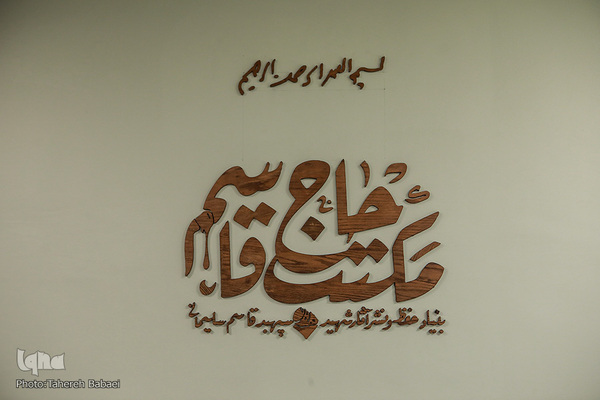 بسم الله الرحمن الرحیم
مکتب حاج قاسم
بنیاد حفظ و نشر آثار شهید سپهبد قاسم سلیمانی
iqna
Photo:Tahereh Babaei